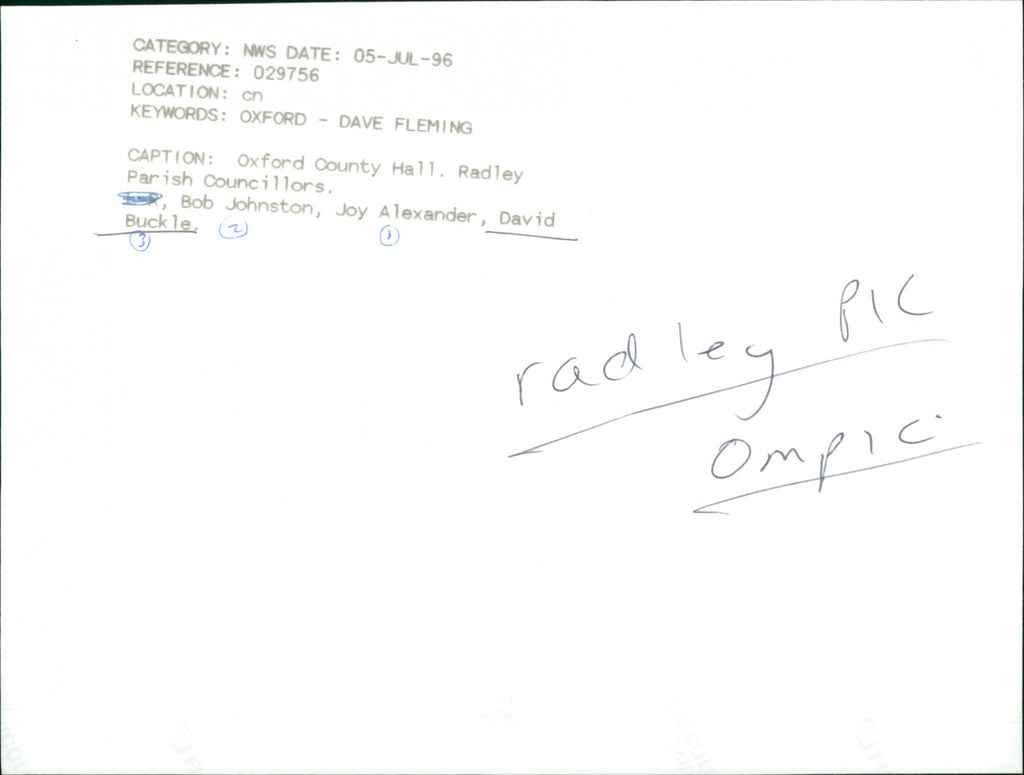 CATEGORY: NWS DATE: 05-JUL-96
REFERENCE: 029756
LOCATION: cn
KEYWORDS: OXFORD - DAVE FLEMING
CAPTION: Oxford County Hall. Radley
Parish Councillors.
, Bob Johnston, Joy Alexander, David
Buckle.
3 2 1
radley PIC
Ompic